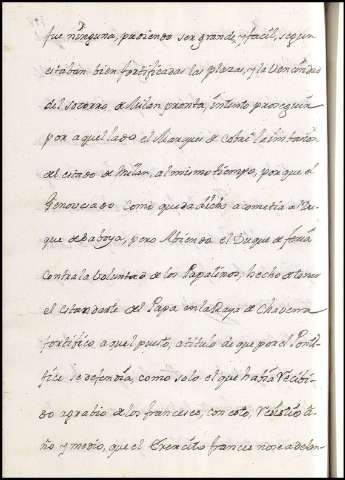 fue ninguna, pudiendo ser grande, y facil, segun
estaban bien fortificadas las plazas, y la vecindad
del socorro de Milan pronta, intento proseguir
por aquel lado el Marques de Cobre la imbasion
del estado de Milan, al mismo tiempo, por que el
Genovesado como queda dicho acometia a
que de Saboya, pero Abiendo el Duque de feria
contra la voluntad de los Papalinos, hecho
el estandarte del Papa en la Plaza de Chavena
fortifico aquel puesto, a titulo de que por el Ponti-
fice se defendia, como solo el que habia Recibi-
do agrabio de los franceses, con esto, Resistio
ño y medio, que el Exercito frances no se adelan-